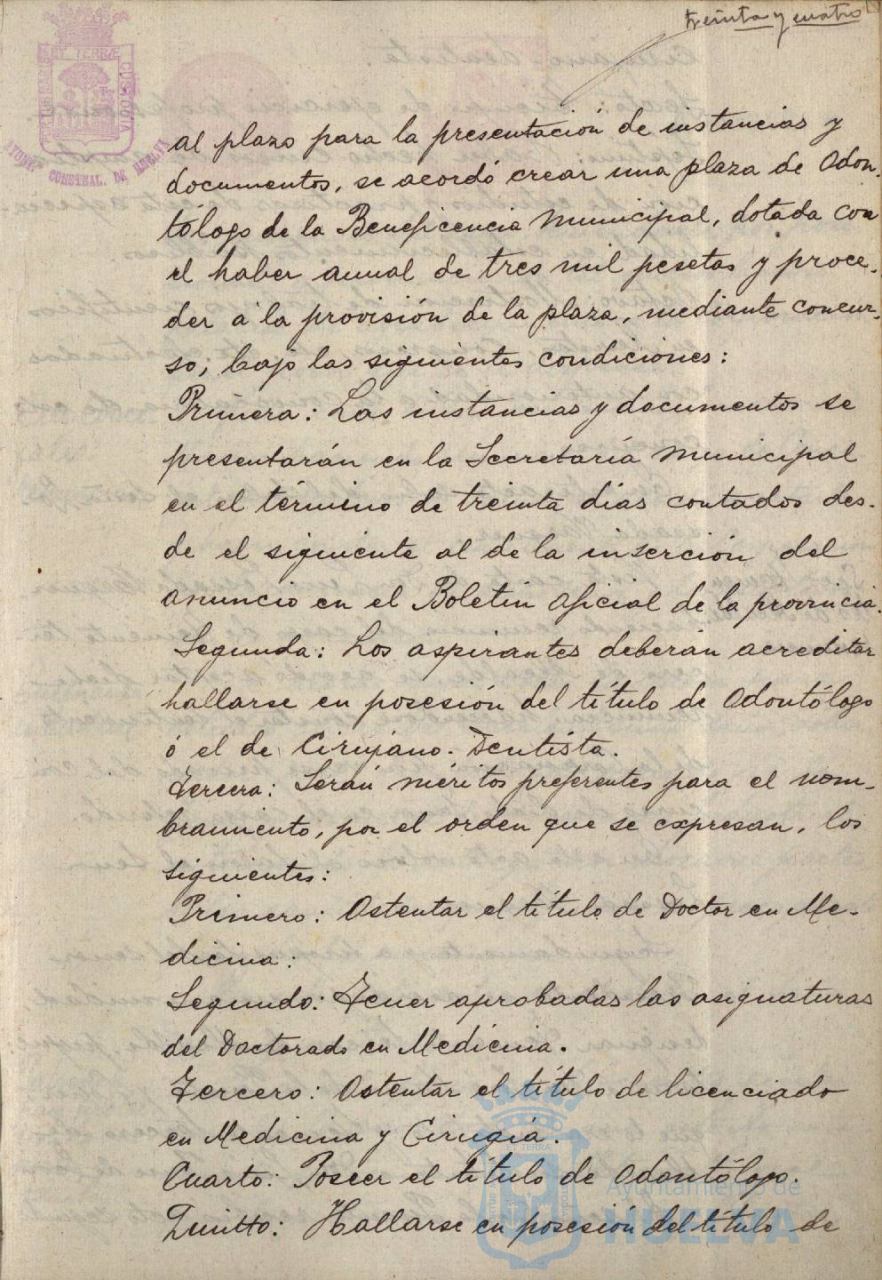 treinta y cuatro
AYUNT. CONSTNAL. DE HUELVA
al plazo para la presentación de instancias y
documentos, se acordó crear una plaza de Odon-
tólogo de la Beneficencia Municipal, dotada con
el haber anual de tres mil pesetas y proce-
der a la provisión de la plaza, mediante concur-
so, bajo las siguientes condiciones:
Primera: Las instancias y documentos se
presentarán en la Secretaría Municipal
en el término de treinta días contados des-
de el siguiente al de la inserción del
anuncio en el Boletín Oficial de la provincia.
Segunda: Los aspirantes deberán acreditar
hallarse en posesión del título de Odontólogo
ó el de Cirujano-Dentista.
Tercera: Serán méritos preferentes para el nom-
bramiento, por el orden que se expresan, los
siguientes:
Primero: Ostentar el título de Doctor en Me-
dicina:
Segundo: Tener aprobadas las asignaturas
del Doctorado en Medicina.
Tercero: Ostentar el título de licenciado
en Medicina y Cirugía.
Cuarto: Poseer el título de Odontólogo.
Quinto: Hallarse en posesión del título de
Ayuntamiento de
HUELVA